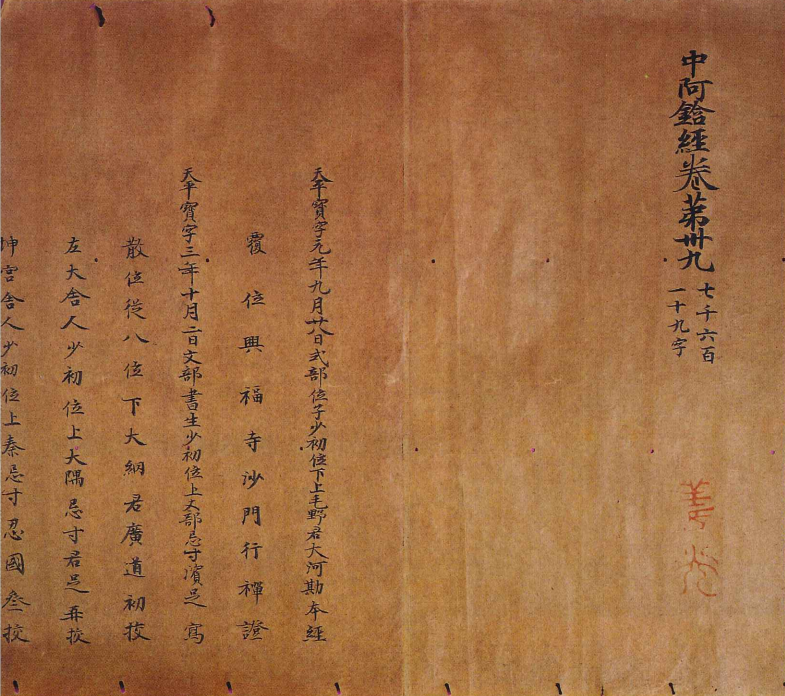 中阿鋡經卷第卌九
七千六百
一十九字
善光
天平寶字元年九月廿八日式部位子少初位下上毛野君大河勘本經
覆位興福寺沙門行禪證
天平寶字三年十月二日文部書生少初位上丈部忌寸濱足寫
散位從八位下大網君廣道初挍
左大舍人少初位上大隅忌寸君足再挍
坤宮舍人少初位上秦忌寸忍國叄挍